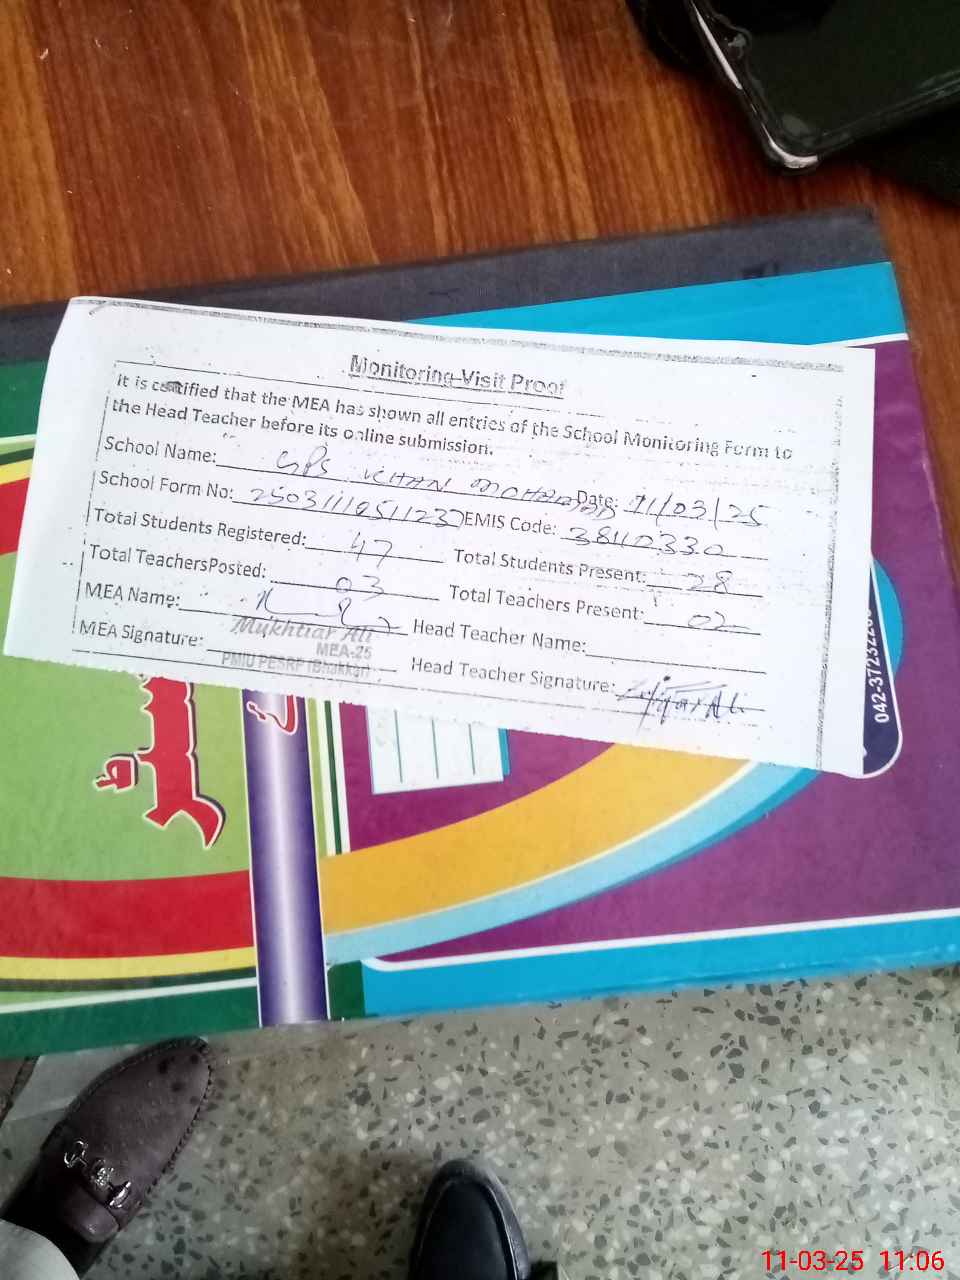 Monitoring Visit Proof
It is certified that the MEA has shown all entries of the School Monitoring Form to
the Head Teacher before its online submission.
School Name: GPS KHAN MOHAMMAD Date: 11/03/25
School Form No: 2503111051123 EMIS Code: 38410330
Total Students Registered: 47 Total Students Present: 28
Total TeachersPosted: 03 Total Teachers Present: 02
MEA Name: Head Teacher Name:
Mukhtiar Ali
MEA-25
PMIU PESRP (Bhakkar)
MEA Signature: Head Teacher Signature: Zulfiqar Ali
11-03-25 11:06